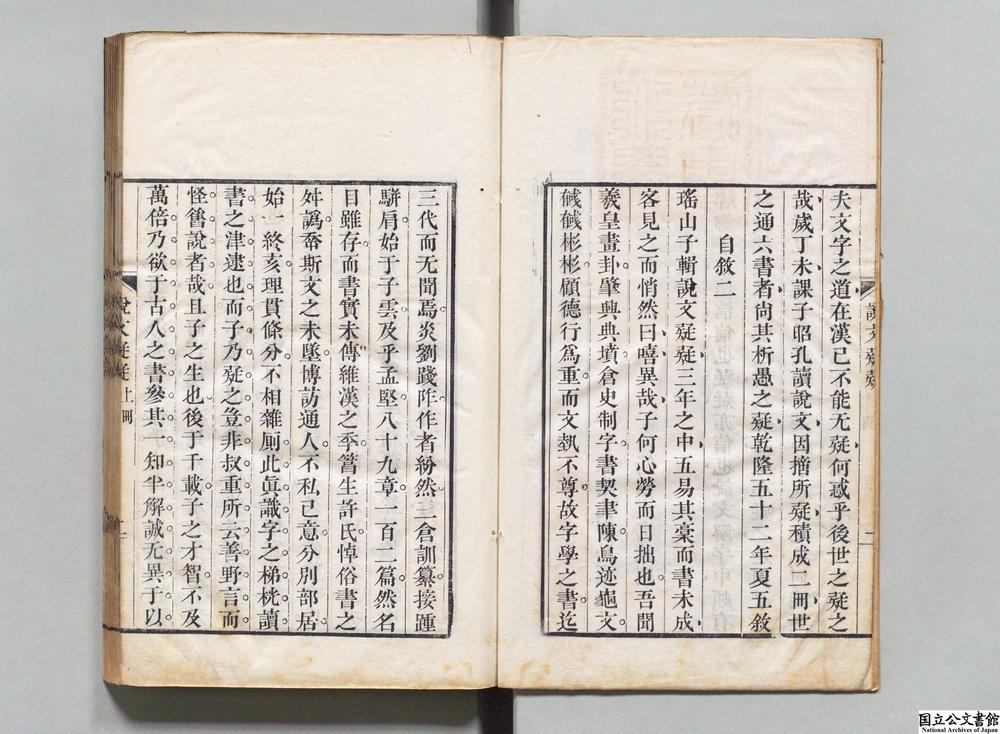 夫文字之道在漢已不能无疑何惑乎後世之疑之
哉歲丁未課子昭孔讀說文因摘所疑積成二冊世
之通六書者尙其析愚之疑乾隆五十二年夏五敘
自敘二
瑤山子輯說文疑疑三年之中五易其稾而書未成
客見之而悄然曰嘻異哉子何心勞而日拙也吾聞
羲皇畫卦肇興典墳倉史制字書契聿陳鳥迹龜文
彧彧彬彬顧德行爲重而文埶不尊故字學之書迄
說文疑疑
三代而无聞焉炎劉踐阼作者紛然三倉訓纂接踵
駢肩始于子雲及乎孟堅八十九章一百二篇然名
目雖存而書實未傳維漢之季篤生許氏悼俗書之
舛譌奉斯文之未墜博訪通人不私己意分別部居
始一終亥理貫條分不相雜廁此眞識字之梯桄讀
書之津逮也而子乃疑之豈非叔重所云善野言而
怪舊說者哉且子之生也後于千載子之才智不及
萬倍乃欲于古人之書參其一知半解誠无異于以
說文疑疑 上冊
二
国立公文書館
National Archives of Japan